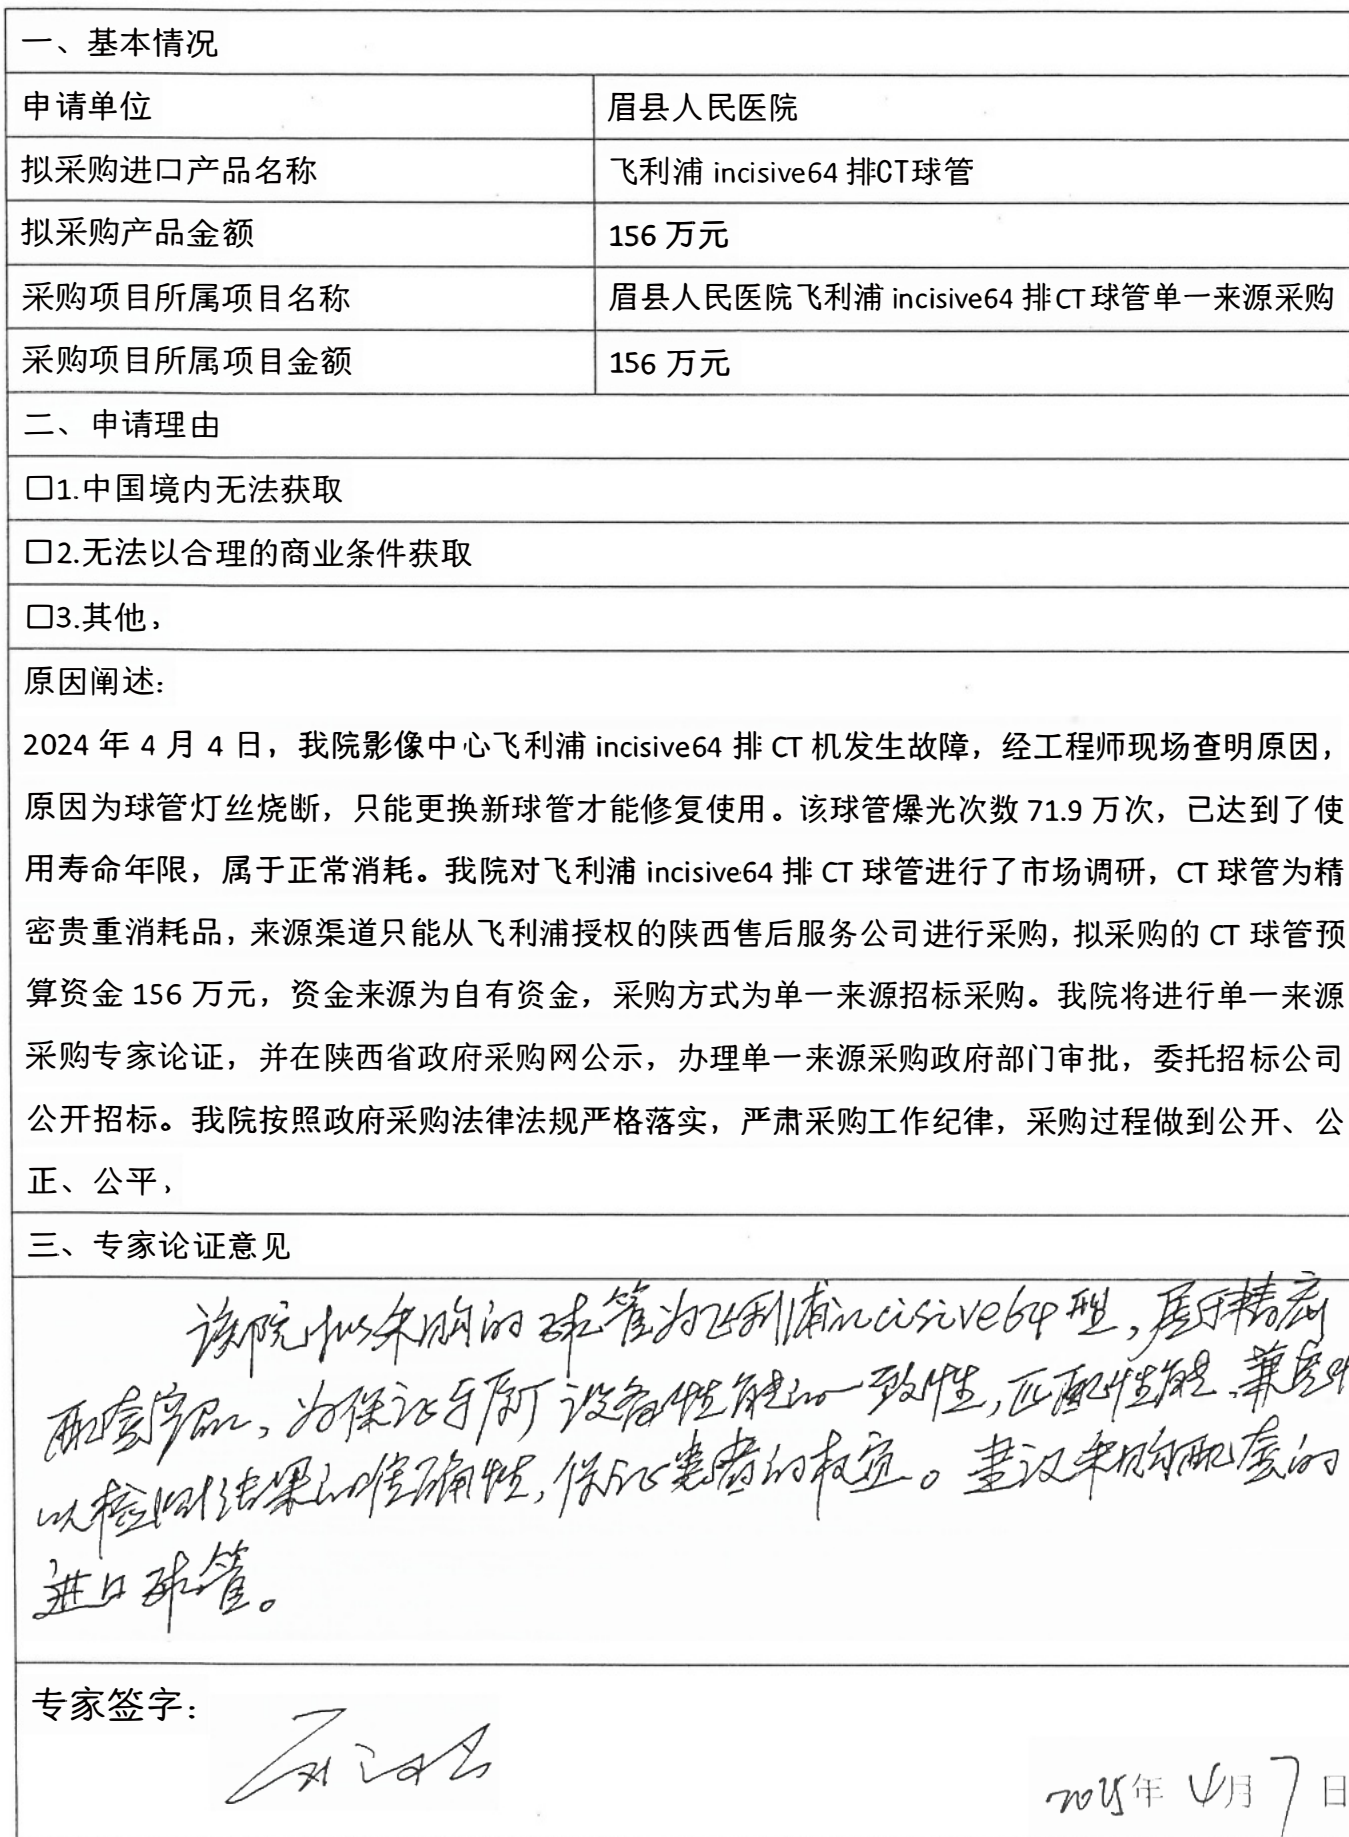 一、基本情况
申请单位 眉县人民医院
拟采购进口产品名称 飞利浦 incisive64 排CT球管
拟采购产品金额 156 万元
采购项目所属项目名称 眉县人民医院飞利浦 incisive64 排 CT 球管单一来源采购
采购项目所属项目金额 156 万元
二、申请理由
□1.中国境内无法获取
□2.无法以合理的商业条件获取
□3.其他，
原因阐述：
2024 年 4 月 4 日，我院影像中心飞利浦 incisive64 排 CT 机发生故障，经工程师现场查明原因，
原因为球管灯丝烧断，只能更换新球管才能修复使用。该球管爆光次数 71.9 万次，已达到了使
用寿命年限，属于正常消耗。我院对飞利浦 incisive64 排 CT 球管进行了市场调研，CT 球管为精
密贵重消耗品，来源渠道只能从飞利浦授权的陕西售后服务公司进行采购，拟采购的 CT 球管预
算资金 156 万元，资金来源为自有资金，采购方式为单一来源招标采购。我院将进行单一来源
采购专家论证，并在陕西省政府采购网公示，办理单一来源采购政府部门审批，委托招标公司
公开招标。我院按照政府采购法律法规严格落实，严肃采购工作纪律，采购过程做到公开、公
正、公平，
三、专家论证意见
该院拟采购的球管为飞利浦incisive64型，属于精密
配套产品，为保证与原厂设备性能的一致性，匹配性能、兼容性
以检测结果的准确性，保证患者的权益。建议采购配套的
进口球管。
专家签字：
2025年 4月 7 日